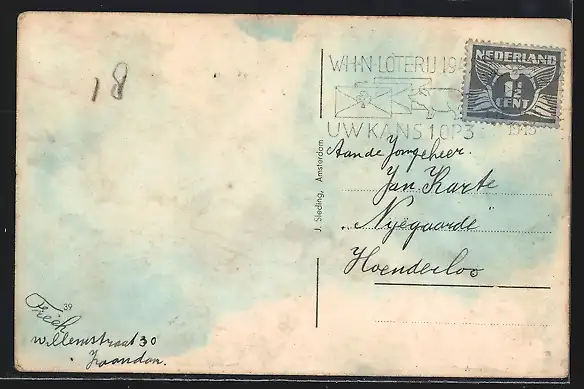 18
W·H·N LOTERIJ 19
UW KANS 1 OP 3
1943
NEDERLAND
1½
CENT
Aan de Jongeheer.
Jan Karte
„Nyegaarde"
Hoenderloo
J. Sleding, Amsterdam
39
Willemstraat 30
Zaandam.